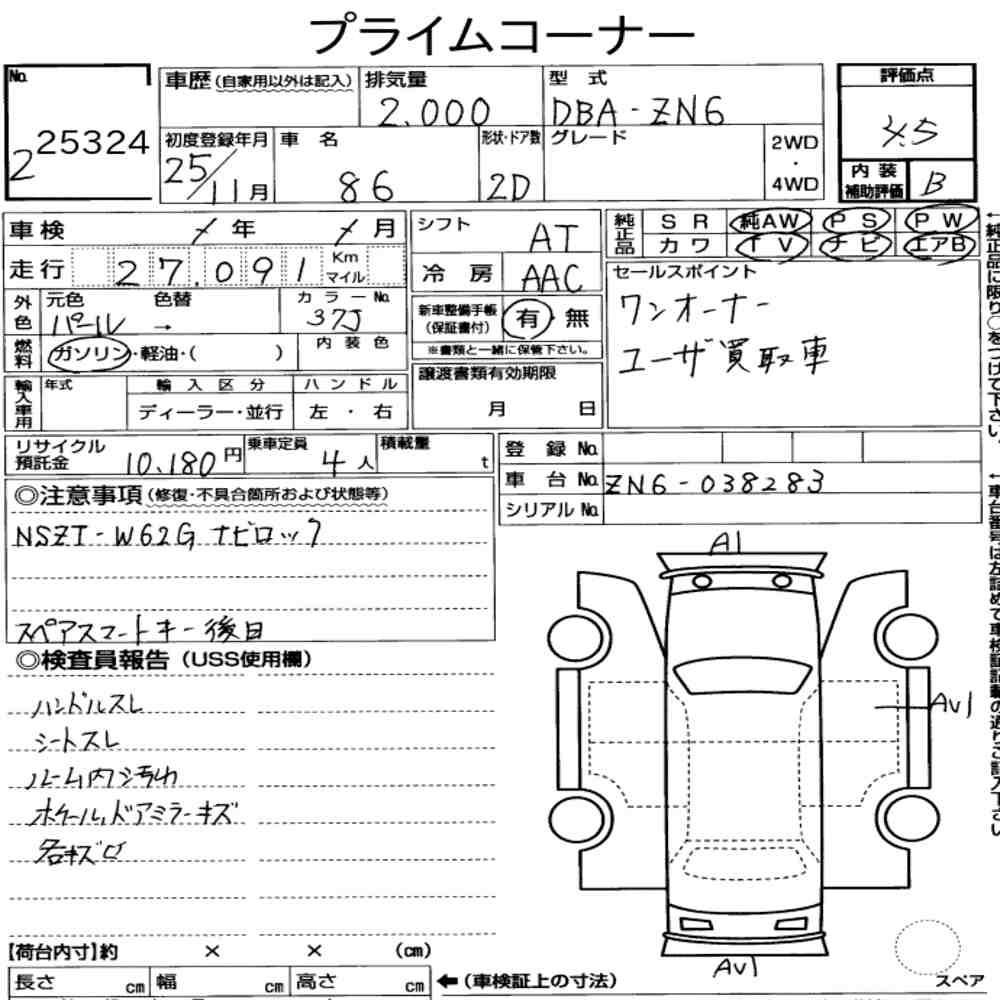 プライムコーナー
No. 25324
2
車歴(自家用以外は記入)
排気量 2.000
型式 DBA-ZN6
評価点 4.5
初度登録年月 25/11月
車名 86
形状・ドア数 2D
グレード
2WD
・
4WD
内装補助評価 B
車検 / 年 / 月
シフト AT
純正品 SR 純AW PS PW
カワ TV ナビ エアB
走行 27.091 Km マイル
冷房 AAC
セールスポイント
ワンオーナー
ユーザ買取車
外色 元色 パール 色替 → カラーNo. 37J
新車整備手帳(保証書付) 有・無
※書類と一緒に保管下さい。
燃料 ガソリン・軽油・( ) 内装色
譲渡書類有効期限
月 日
輸入車用 年式 輸入区分 ハンドル
ディーラー・並行 左・右
リサイクル預託金 10,180円 乗車定員 4人 積載量 t
登録No.
車台No. ZN6-038283
シリアルNo.
◎注意事項(修復・不具合箇所および状態等)
NSZT-W62G ナビロック
スペアスマートキー後日
◎検査員報告(USS使用欄)
ハンドルスレ
シートスレ
ルーム内汚れ
ホイール、ドアミラーキズ
A1
AV1
AV1
スペア
【荷台内寸】約 × × (cm)
長さ cm 幅 cm 高さ cm
←(車検証上の寸法)
←純正品に限り○をつけて下さい。